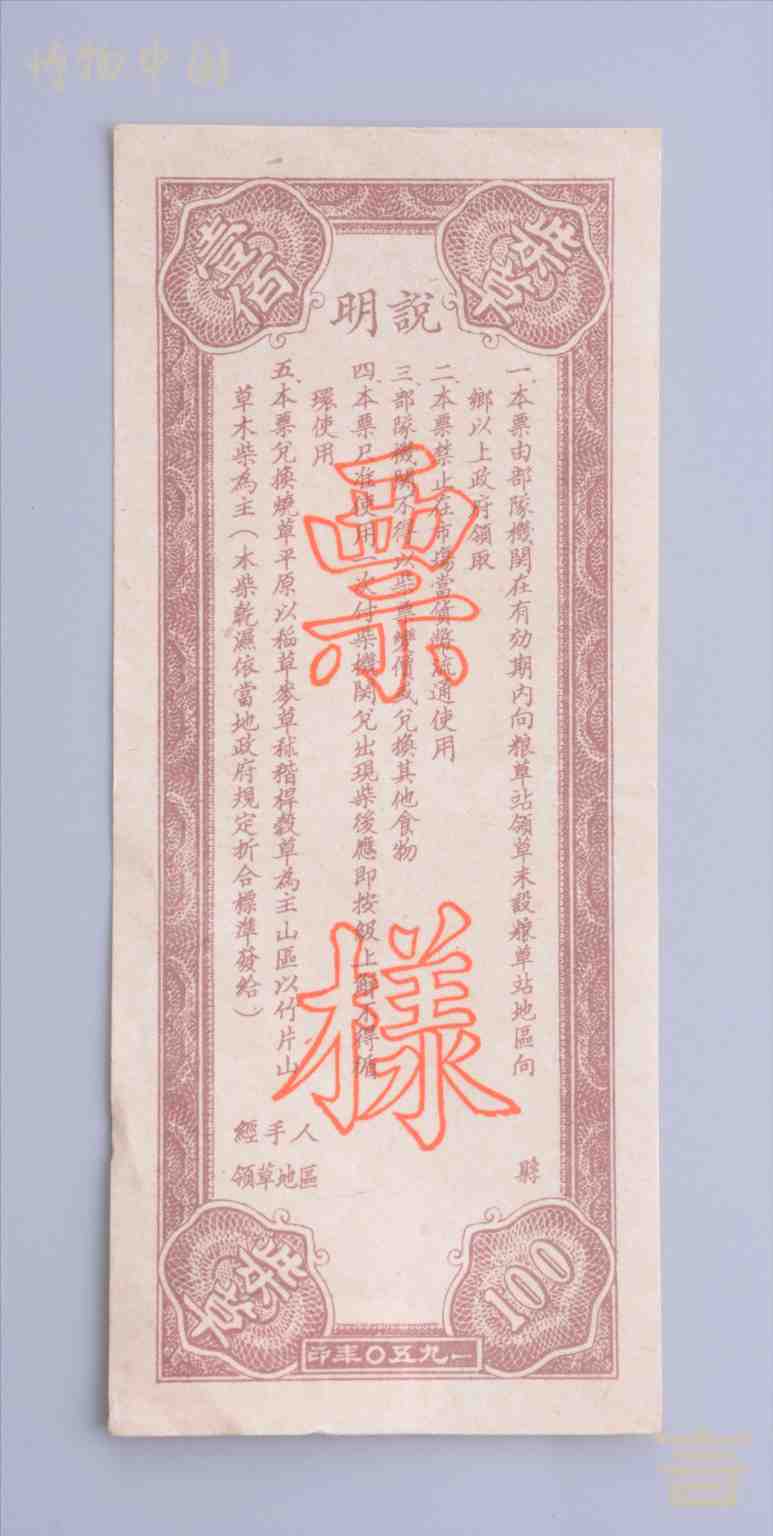 博物中国
壹佰
柴草
說明
一、本票由部隊機関在有効期内向粮草站領草未設粮草站地區向
鄉以上政府領取
二、本票禁止在市場當貨幣流通使用
三、部隊機関不得以柴草變價或兌換其他食物
四、本票只准使用一次付柴機関兌出現柴後應即按級上解不得循
環使用
五、本票兌換燒草平原以稻草麥草秫稭桿穀草為主山區以竹片山
草木柴為主（木柴乾濕依當地政府規定折合標準發給）
票樣
縣
經手人
領草地區
柴草
100
一九五〇年印